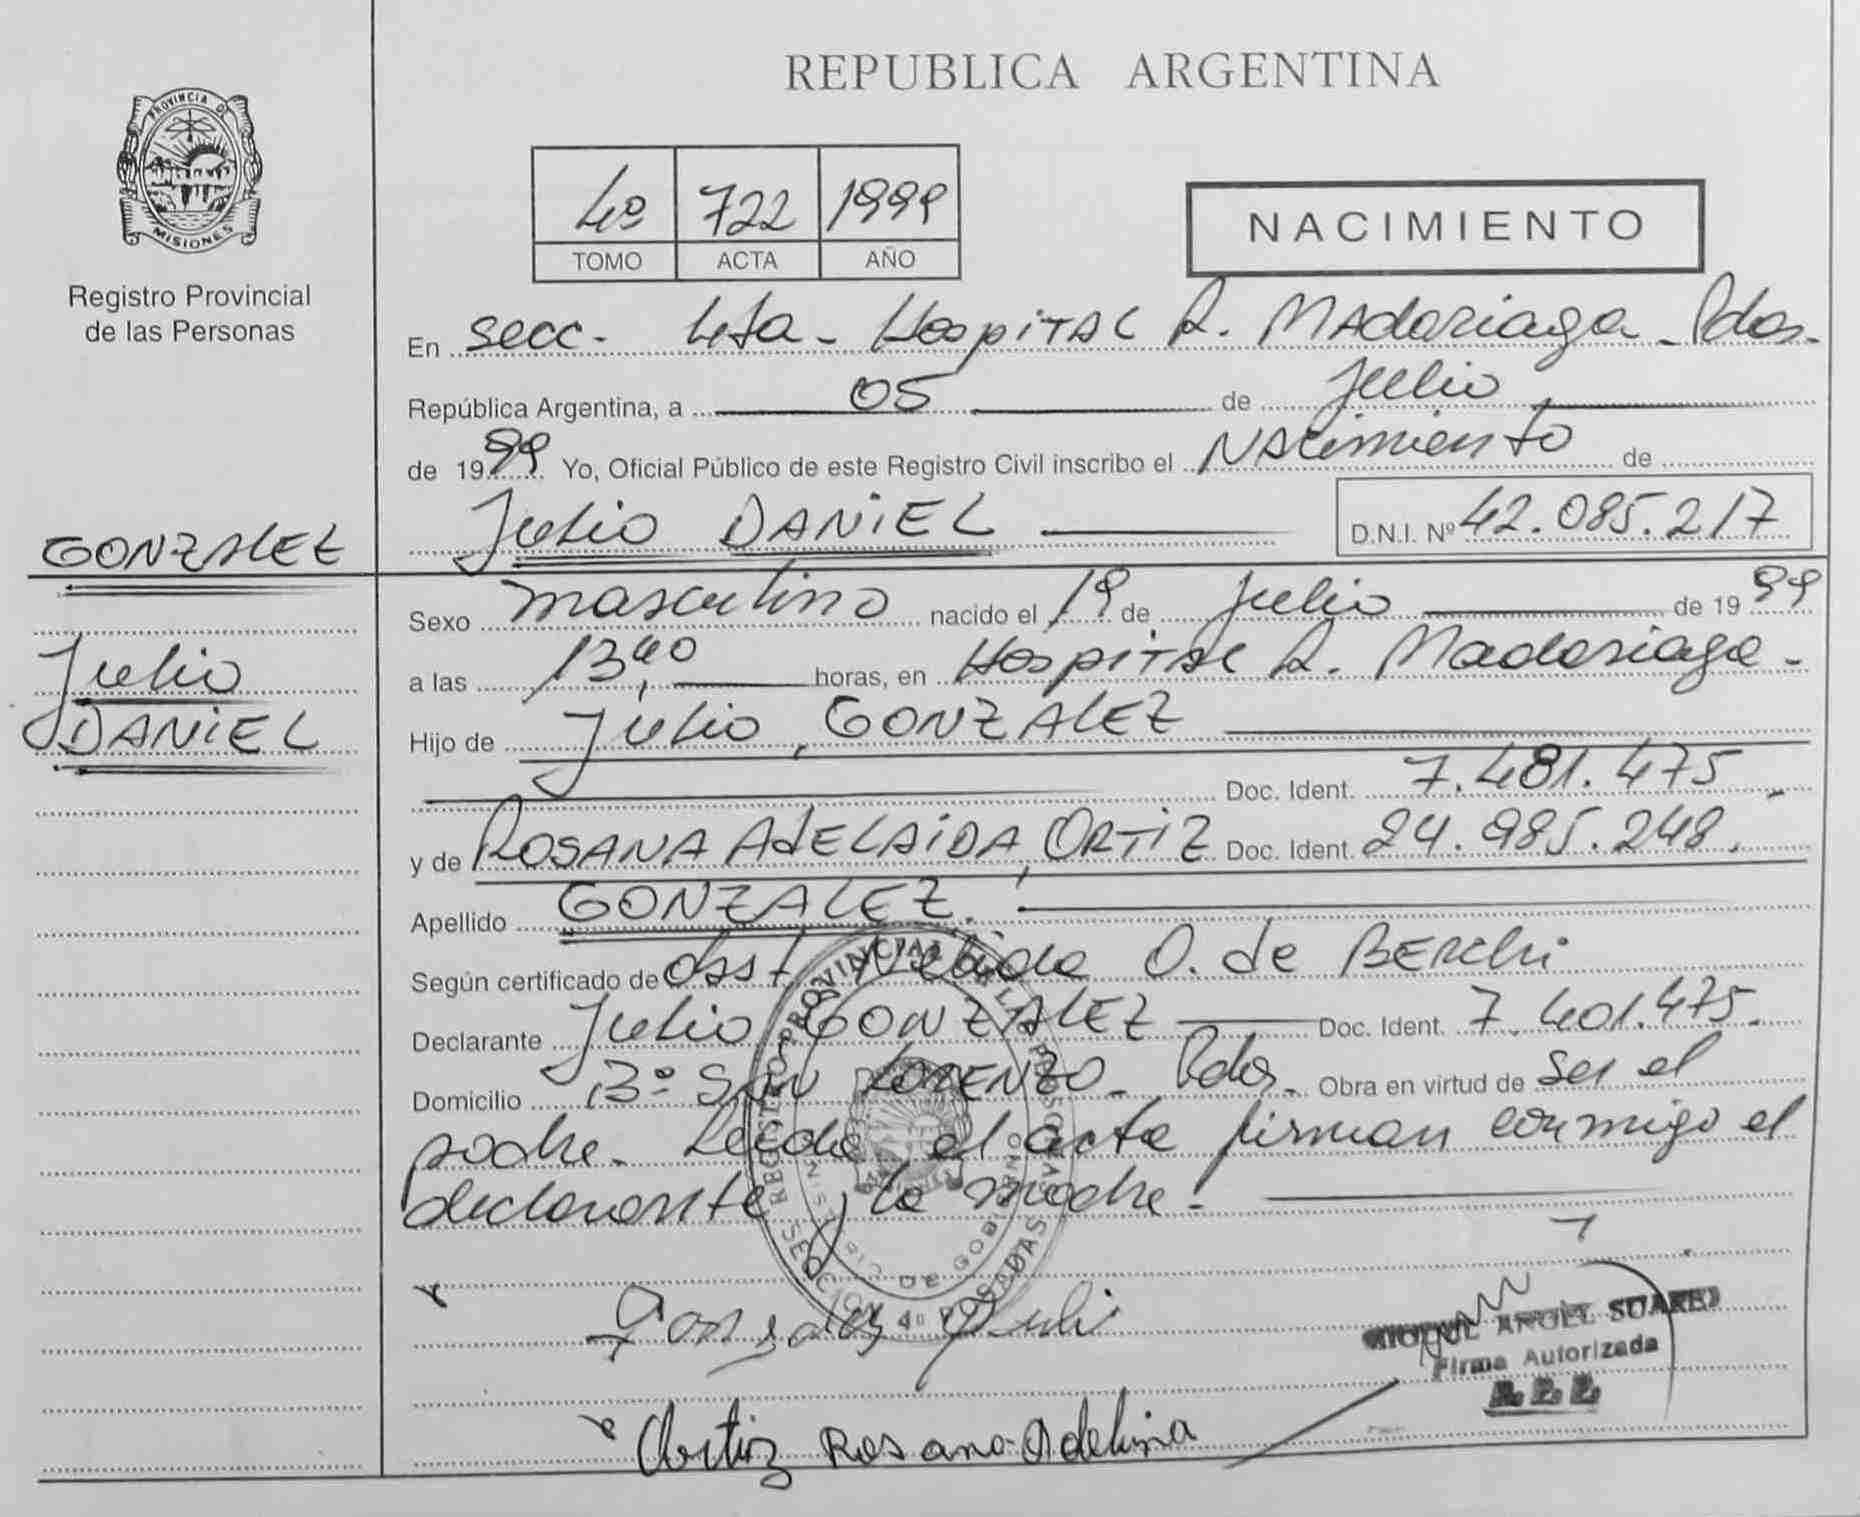 REPUBLICA ARGENTINA
PROVINCIA DE
MISIONES
Registro Provincial
de las Personas
4º 722 1999
TOMO ACTA AÑO
NACIMIENTO
En secc. 4ta - Hospital R. Madariaga - Pdas.
República Argentina, a 05 de Julio
de 1999 Yo, Oficial Público de este Registro Civil inscribo el Nacimiento de
Julio DANIEL D.N.I. Nº 42.085.217
GONZALEZ
Julio
DANIEL
Sexo masculino nacido el 1º de Julio de 1999
a las 13,40 horas, en Hospital R. Madariaga -
Hijo de Julio, GONZALEZ
Doc. Ident. 7.481.475 -
y de ROSANA ADELAIDA, ORTIZ Doc. Ident. 24.985.248.
Apellido GONZALEZ.
Según certificado de Obst. Nelida O. de BERCHI
Declarante Julio GONZALEZ Doc. Ident. 7.401.475.
Domicilio Bº SAN LORENZO - Pdas. - Obra en virtud de ser el
padre - Leída el acta firman conmigo el
declarante y la madre.
REGISTRO PROVINCIAL DE LAS PERSONAS
MINISTERIO DE GOBIERNO
SECCION 4º POSADAS
Gonzalez Juli
ANGEL SUAREZ
Firma Autorizada
Ortiz Rosana Adelina